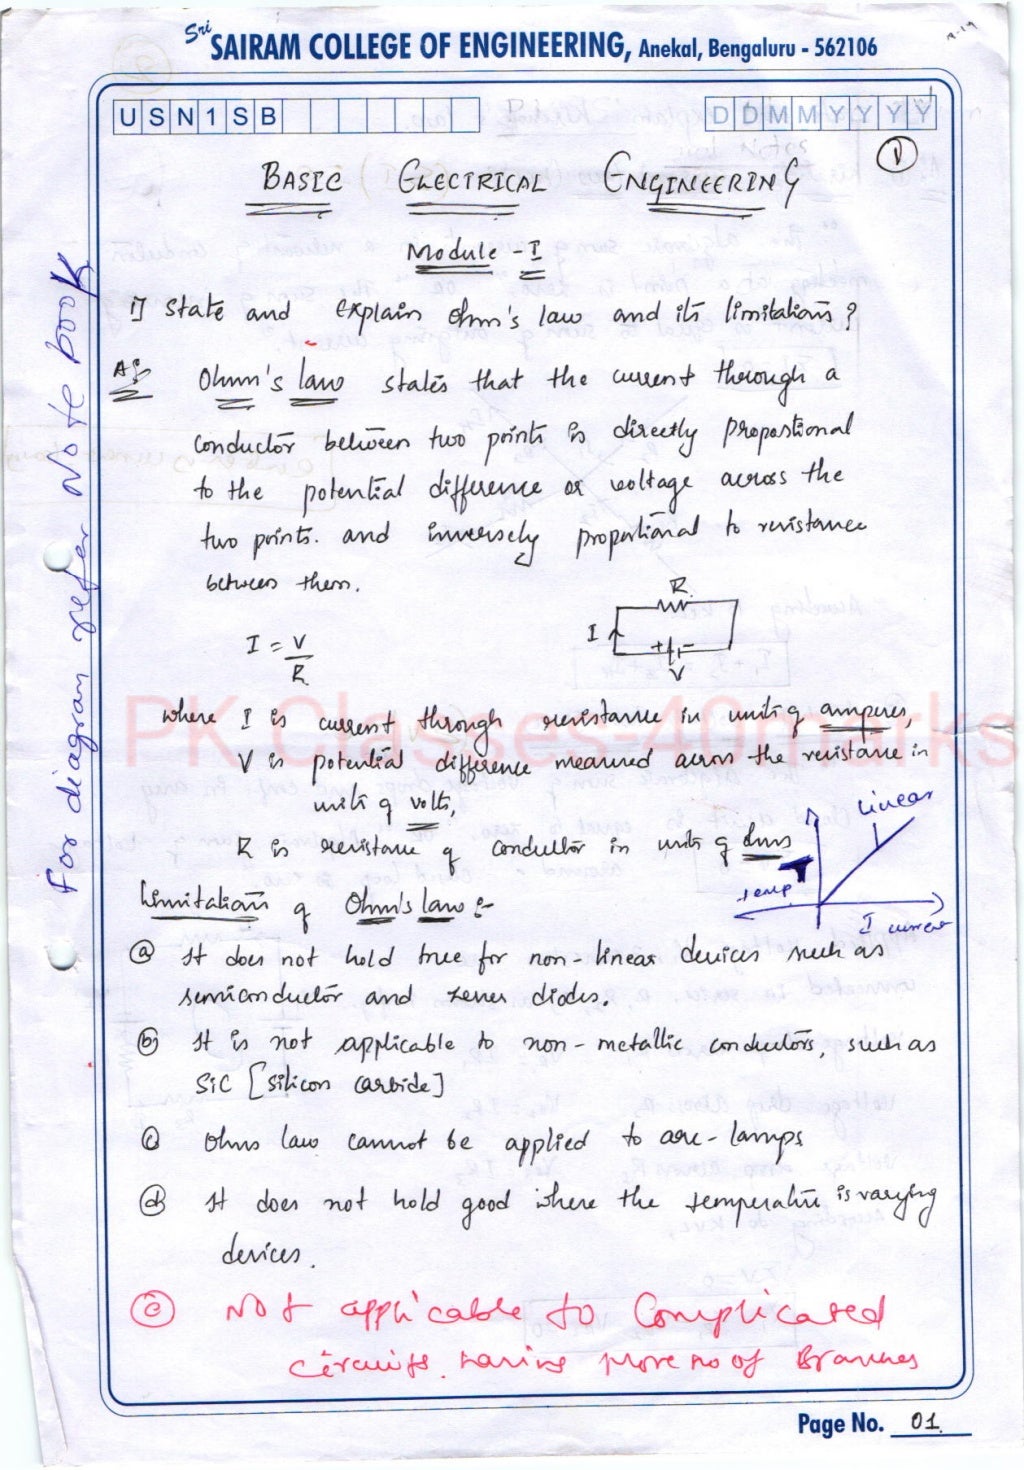 Sri SAIRAM COLLEGE OF ENGINEERING, Anekal, Bengaluru - 562106
U S N 1 S B
D D M M Y Y Y Y
1
BASIC ELECTRICAL ENGINEERING
Module - I
1] State and explain Ohm's law and its limitations?
A]
Ohm's law states that the current through a
conductor between two points is directly proportional
to the potential difference or voltage across the
two points. and inversely proportional to resistance
between them.
I = V
R
R
I
+ -
V
where I is current through resistance in units of amperes,
V is potential difference measured across the resistance in
units of volts,
R is resistance of conductor in units of ohms
Linear
temp
I current
Limitations of Ohm's law :-
(a) It does not hold true for non-linear devices such as
semiconductor and zener diodes.
(b) It is not applicable to non-metallic conductors, such as
SiC [silicon carbide]
(c) Ohms law cannot be applied to arc-lamps
(d) It does not hold good where the temperature is varying
devices.
(e) Not applicable to Complicated
circuits having more no of Branches
For diagram refer Note book
PK Classes-40marks
Page No. 01